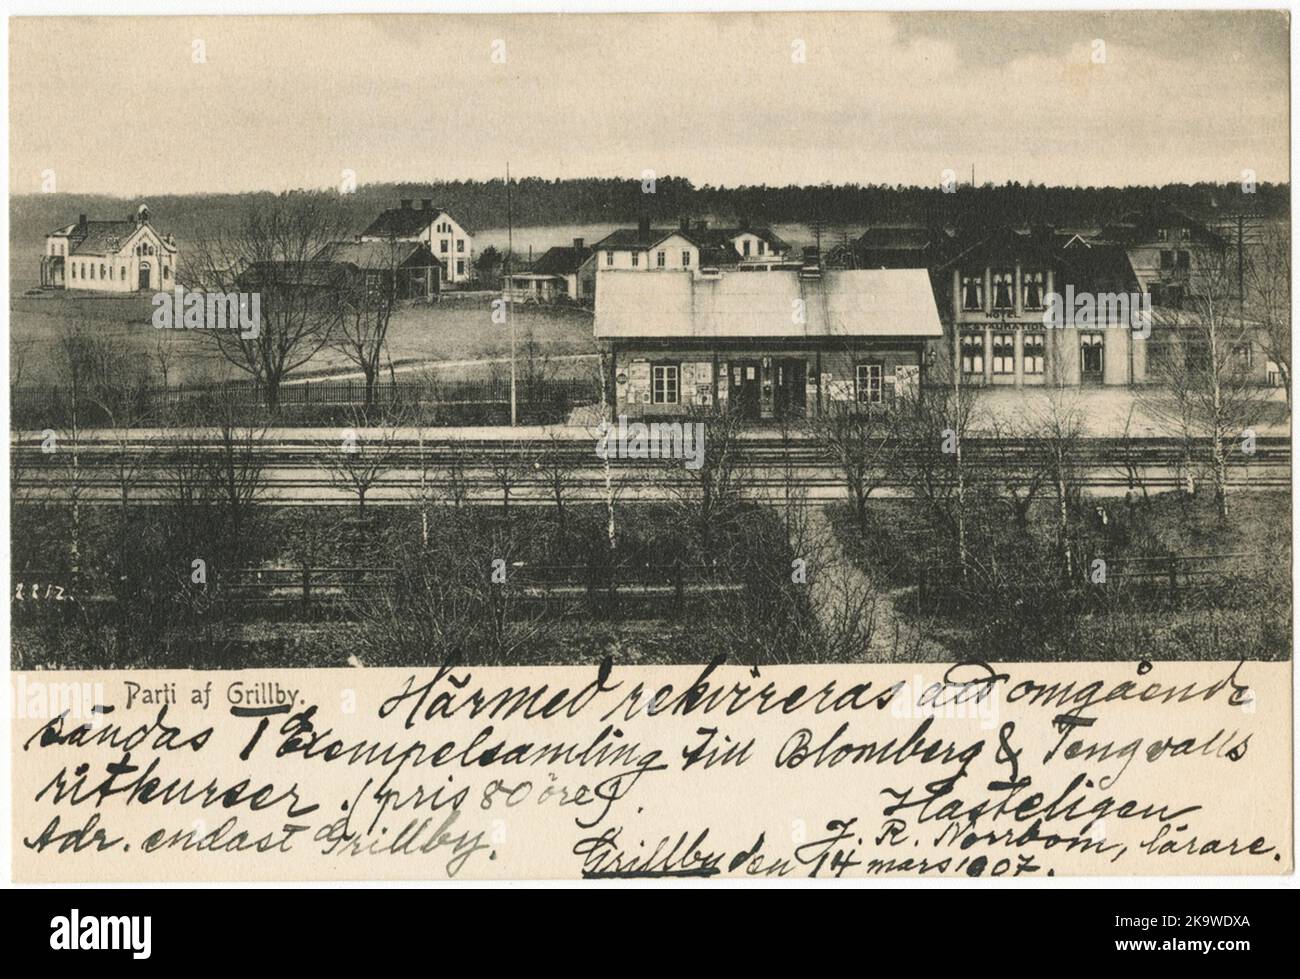 HOTEL
2212.
Parti af Grillby.
Härmed rekvireras att omgående
sändas 1 Exempelsamling till Blomberg & Tengvalls
ritkurser. (pris 80 öre).
Hasteligen
Adr. endast Grillby.
J. R. Norrbom, lärare.
Grillby den 14 mars 1907.
alamy
Image ID: 2K9WDXA
www.alamy.com